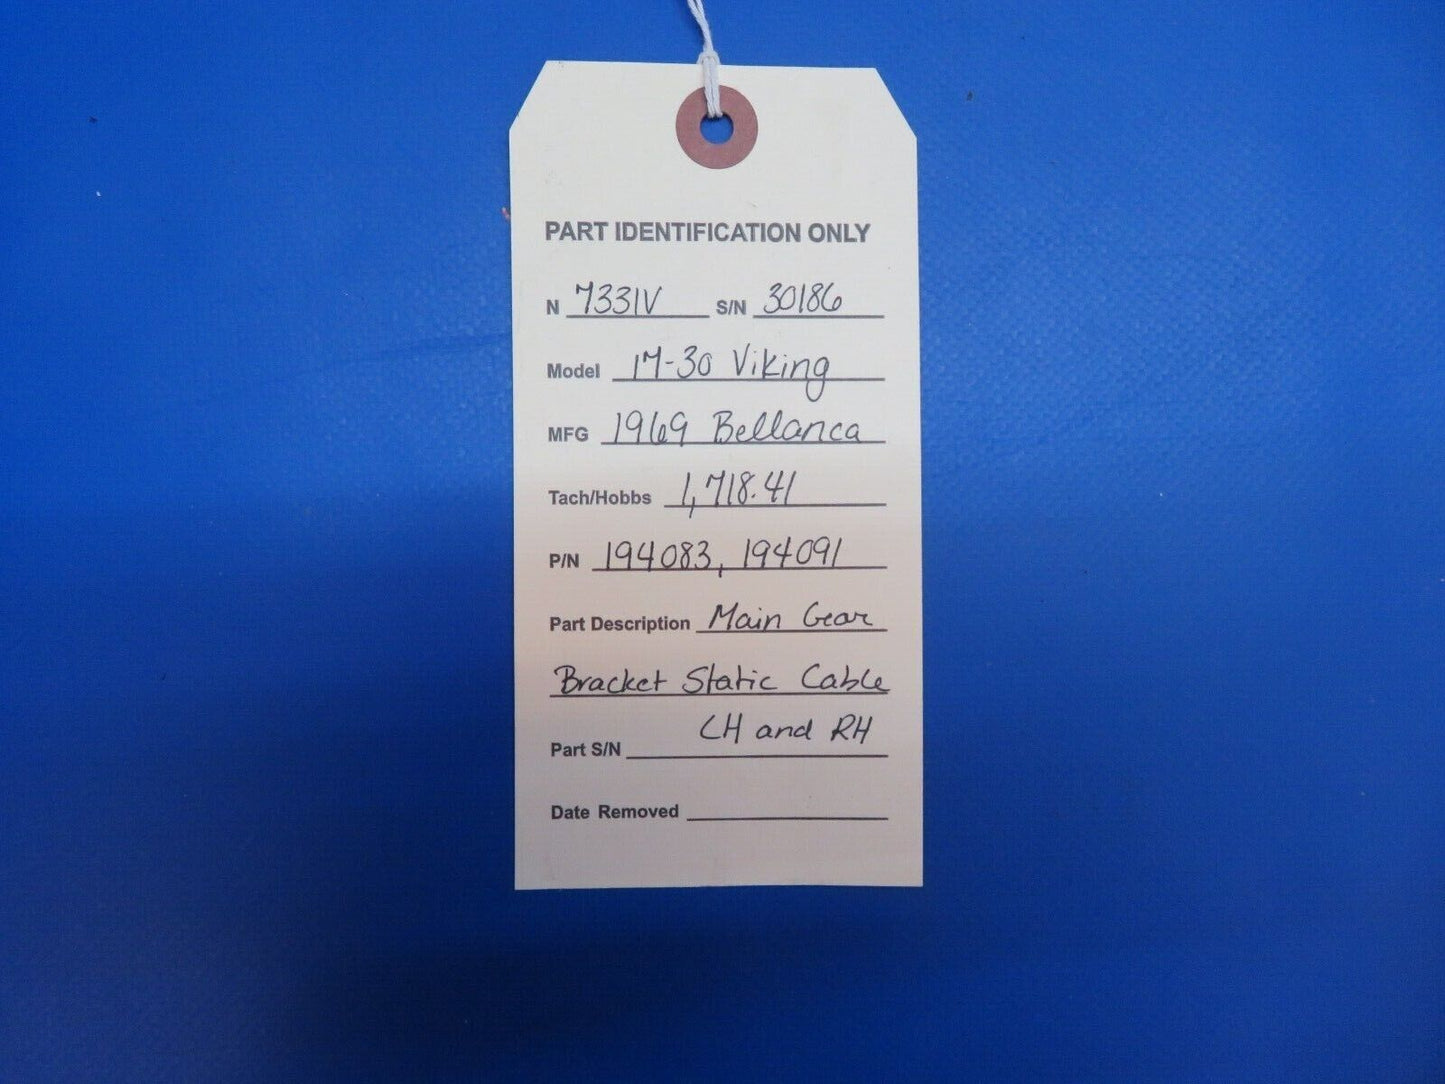 PART IDENTIFICATION ONLY
N 7331V S/N 30186
Model 17-30 Viking
MFG 1969 Bellanca
Tach/Hobbs 1,718.41
P/N 194083, 194091
Part Description Main Gear
Bracket Static Cable
LH and RH
Part S/N
Date Removed